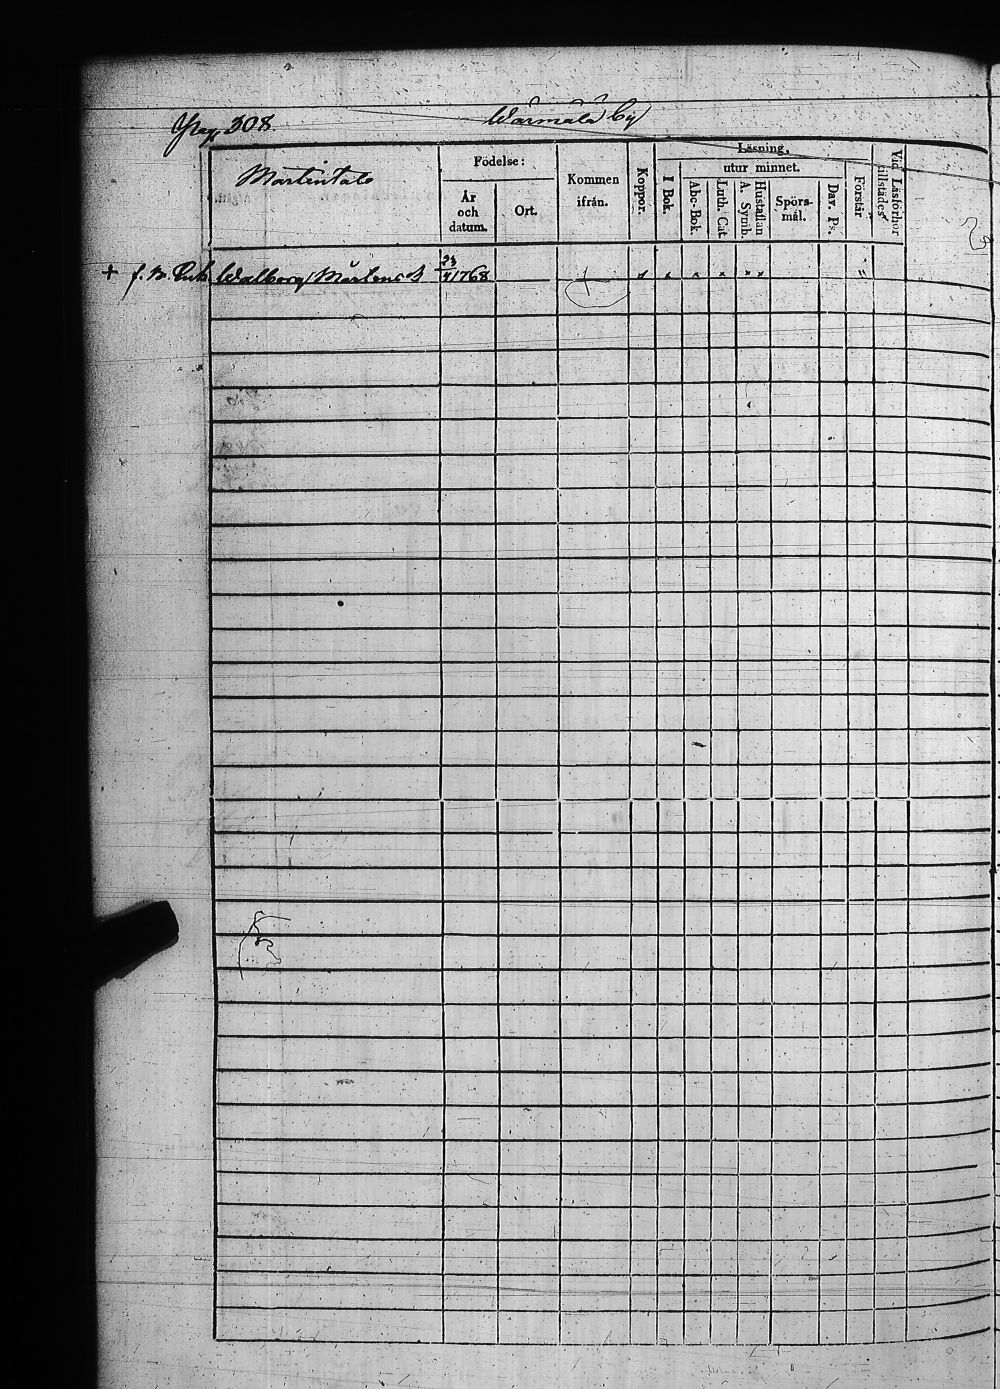 Pag. 308
Wärmälä By
Martintalo
Födelse:
År och datum.
Ort.
Kommen ifrån.
Koppor.
Läsning.
I Bok.
utur minnet.
Abc-Bok.
Luth. Cat.
Hustaflan A. Symb.
Spörsmål.
Dav. Ps.
Förstår
Vid Läsförhör tillstädes
+ f. B. Enk. Walborg Mårtens d 23/4 1768